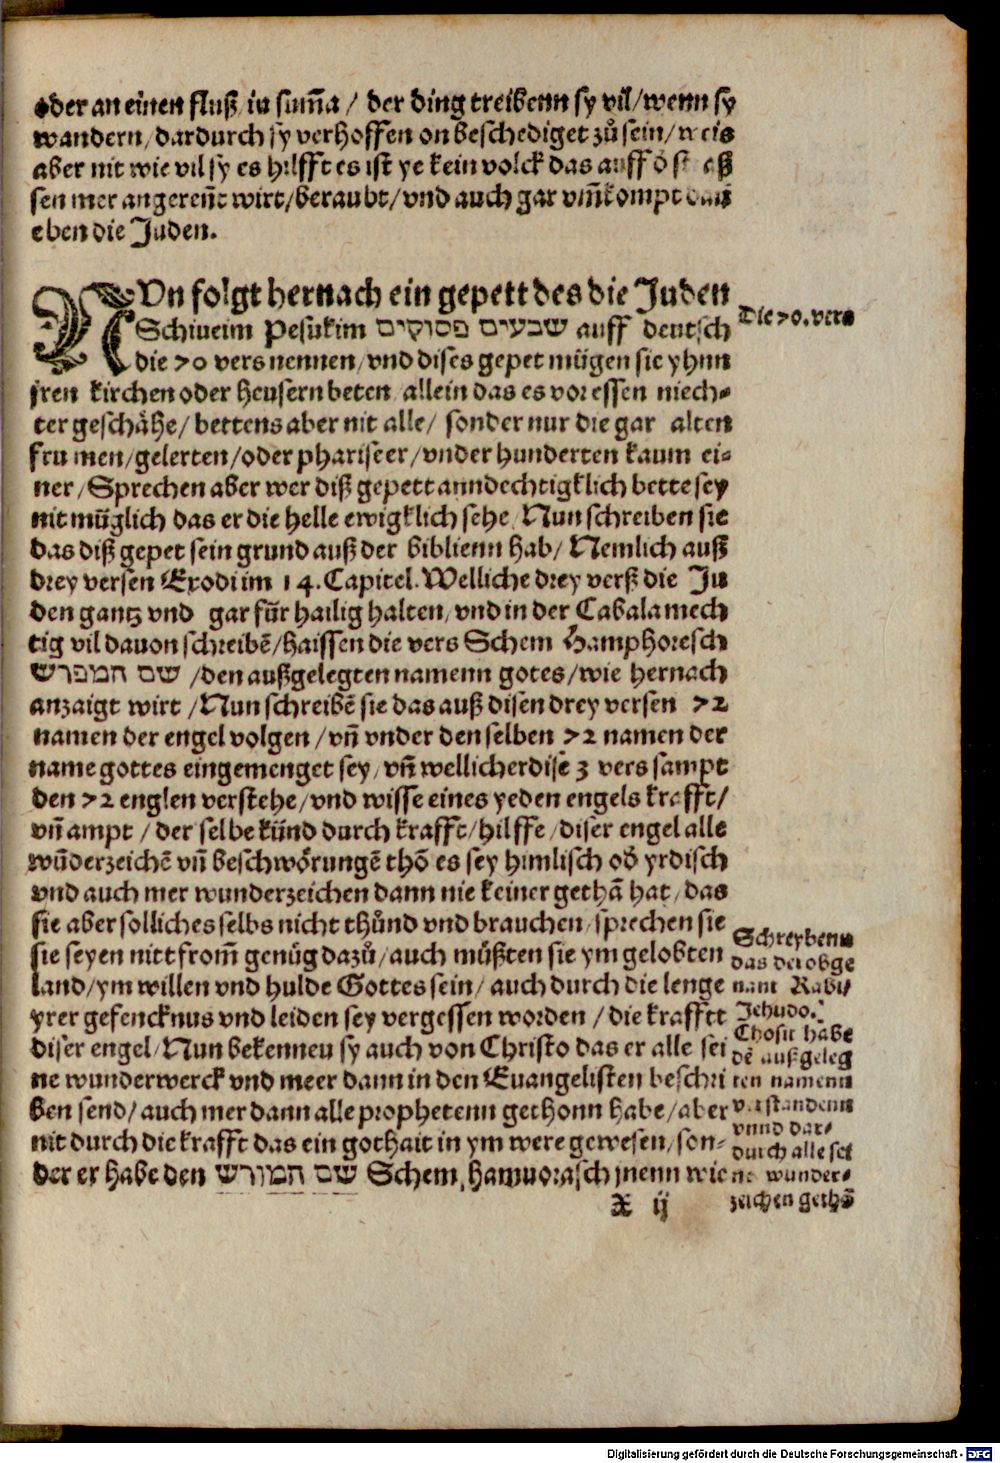 oder an einen fluß, in sum̄a / der ding treibenn sy vil/wenn sy
wandern/dardurch sy verhoffen on beschediget zů sein/weis
aber nit wie vil sy es hilfft es ist ye kein volck das auff
sen mer angeren̄t wirt/beraubt/vnd auch gar vm̄kompt dan̄
eben die Juden.
NVn folgt hernach ein gepett des die Juden
Schiueim Pesukim שבעים פסוקים auff deutsch
die 70 vers nennen/vnd dises gepet mügen sie yhnn
jren kirchen oder heusern beten allein das es vor essen niech-
ter geschähe/ bettens aber nit alle/ sonder nur die gar alten
frumen/gelerten/oder phariseer/vnder hunderten kaum ei-
ner/Sprechen aber wer diß gepett anndechtigklich bette sey
nit müglich das er die helle ewigklich sehe, Nun schreiben sie
das diß gepet sein grund auß der biblienn hab/ Nemlich auß
drey versen Exodi im 14. Capitel. Welliche drey verß die Ju
den gantz vnd gar für hailig halten/vnd in der Cabala mech
tig vil dauon schreibē/haissen die vers Schem Hamphoresch
שם המפרש /den außgelegten namenn gotes/wie hernach
anzaigt wirt/Nun schreibē sie das auß disen drey versen 72
namen der engel volgen/vn̄ vnder den selben 72 namen der
name gottes eingemenget sey/vn̄ wellicher dise 3 vers sampt
den 72 englen verstehe/vnd wisse eines yeden engels krafft/
vn̄ ampt / der selbe künd durch krafft/hilffe/diser engel alle
wūderzeichē vn̄ beschwörungē thō es sey himlisch od yrdisch
vnd auch mer wunderzeichen dann nie keiner gethā hat/das
sie aber solliches selbs nicht thůnd vnd brauchen/sprechen sie
sie seyen nitt from̄ genůg dazů/auch müßten sie ym gelobten
land/ym willen vnd hulde Gottes sein/ auch durch die lenge
yrer gefencknus vnd leiden sey vergessen worden / die krafftt
diser engel/Nun bekennen sy auch von Christo das er alle sei
ne wunderwerck vnd meer dann in den Euangelisten beschri
ben send/auch mer dann alle prophetenn gethonn habe/aber
nit durch die krafft das ein gothait in ym were gewesen/son-
der er habe den שם המורש Schem, hamuorasch jnenn wie
X ij
Die 70. vers
Schreybenn
das der obge
nant Rabi/
Jehudo.
Chosit habe
dē außgeleg
ten namenn
verstandenn
vnnd dar-
durch alle sei
ne wunder-
zeichen gethō
Digitalisierung gefördert durch die Deutsche Forschungsgemeinschaft - DFG